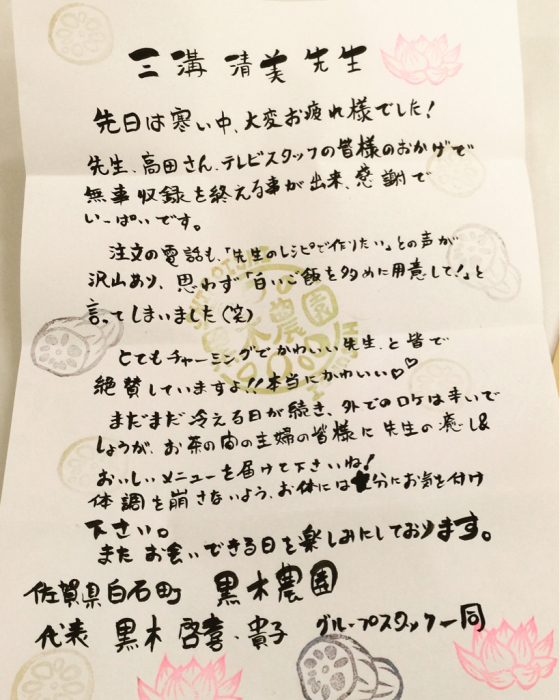 三溝 清美 先生
先日は寒い中、大変お疲れ様でした！
先生、高田さん、テレビスタッフの皆様のおかげで
無事収録を終える事が出来、感謝で
いっぱいです。
注文の電話も、「先生のレシピで作りたい」との声が
沢山あり、思わず「白いご飯を多めに用意して！」と
言ってしまいました(笑)
とてもチャーミングでかわいい先生、と皆で
絶賛していますよ!!本当にかわいい♡♡
まだまだ冷える日が続き、外でのロケは辛いで
しょうが、お茶の間の主婦の皆様に先生の癒し&
おいしいメニューを届けて下さいね！
体調を崩さないよう、お体には十分にお気を付け
下さい。
またお会いできる日を楽しみにしております。
佐賀県白石町 黒木農園
代表 黒木 啓喜・貴子 グループスタッフ一同
農園